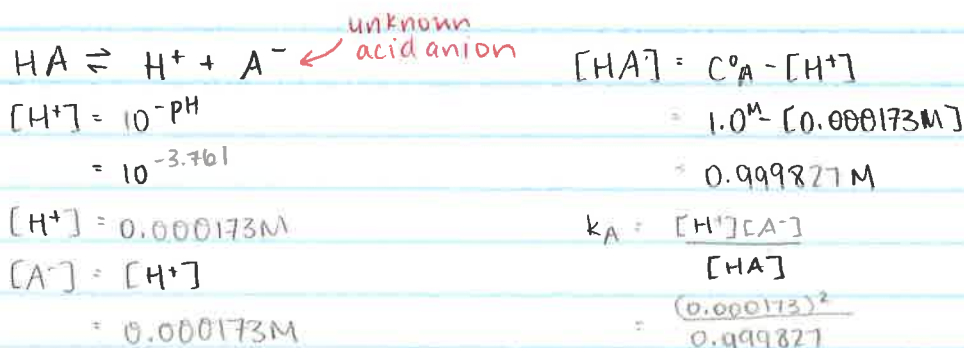 unknown
acid anion
HA ⇌ H⁺ + A⁻
[H⁺] = 10^-pH
= 10^-3.761
[H⁺] = 0.000173M
[A⁻] = [H⁺]
= 0.000173M
[HA] = C°A - [H⁺]
= 1.0ᴹ - [0.000173M]
= 0.999827M
kA = [H⁺][A⁻]
[HA]
= (0.000173)²
0.999827